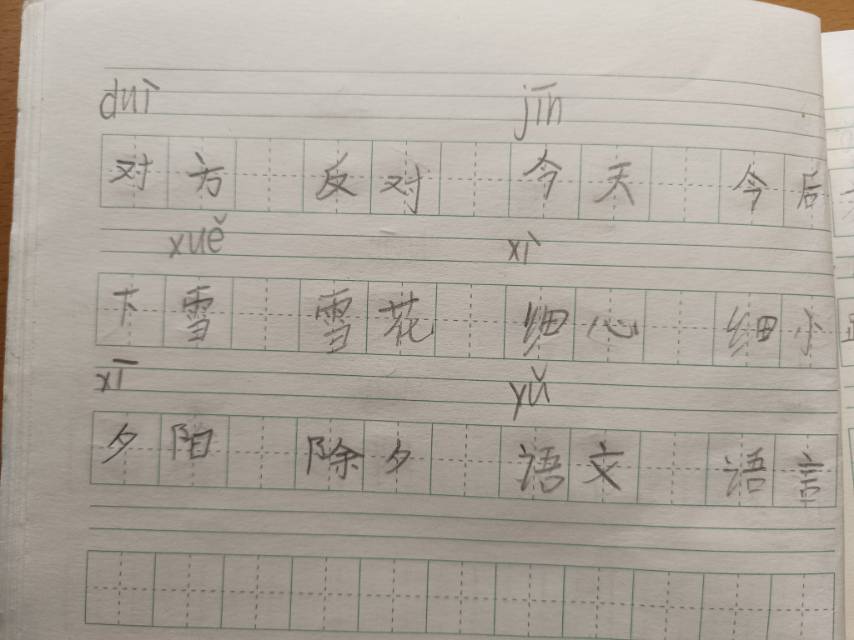 duì jīn
对方 反对 今天 今后
xuě xì
下雪 雪花 细心 细小
xī yǔ
夕阳 除夕 语文 语言